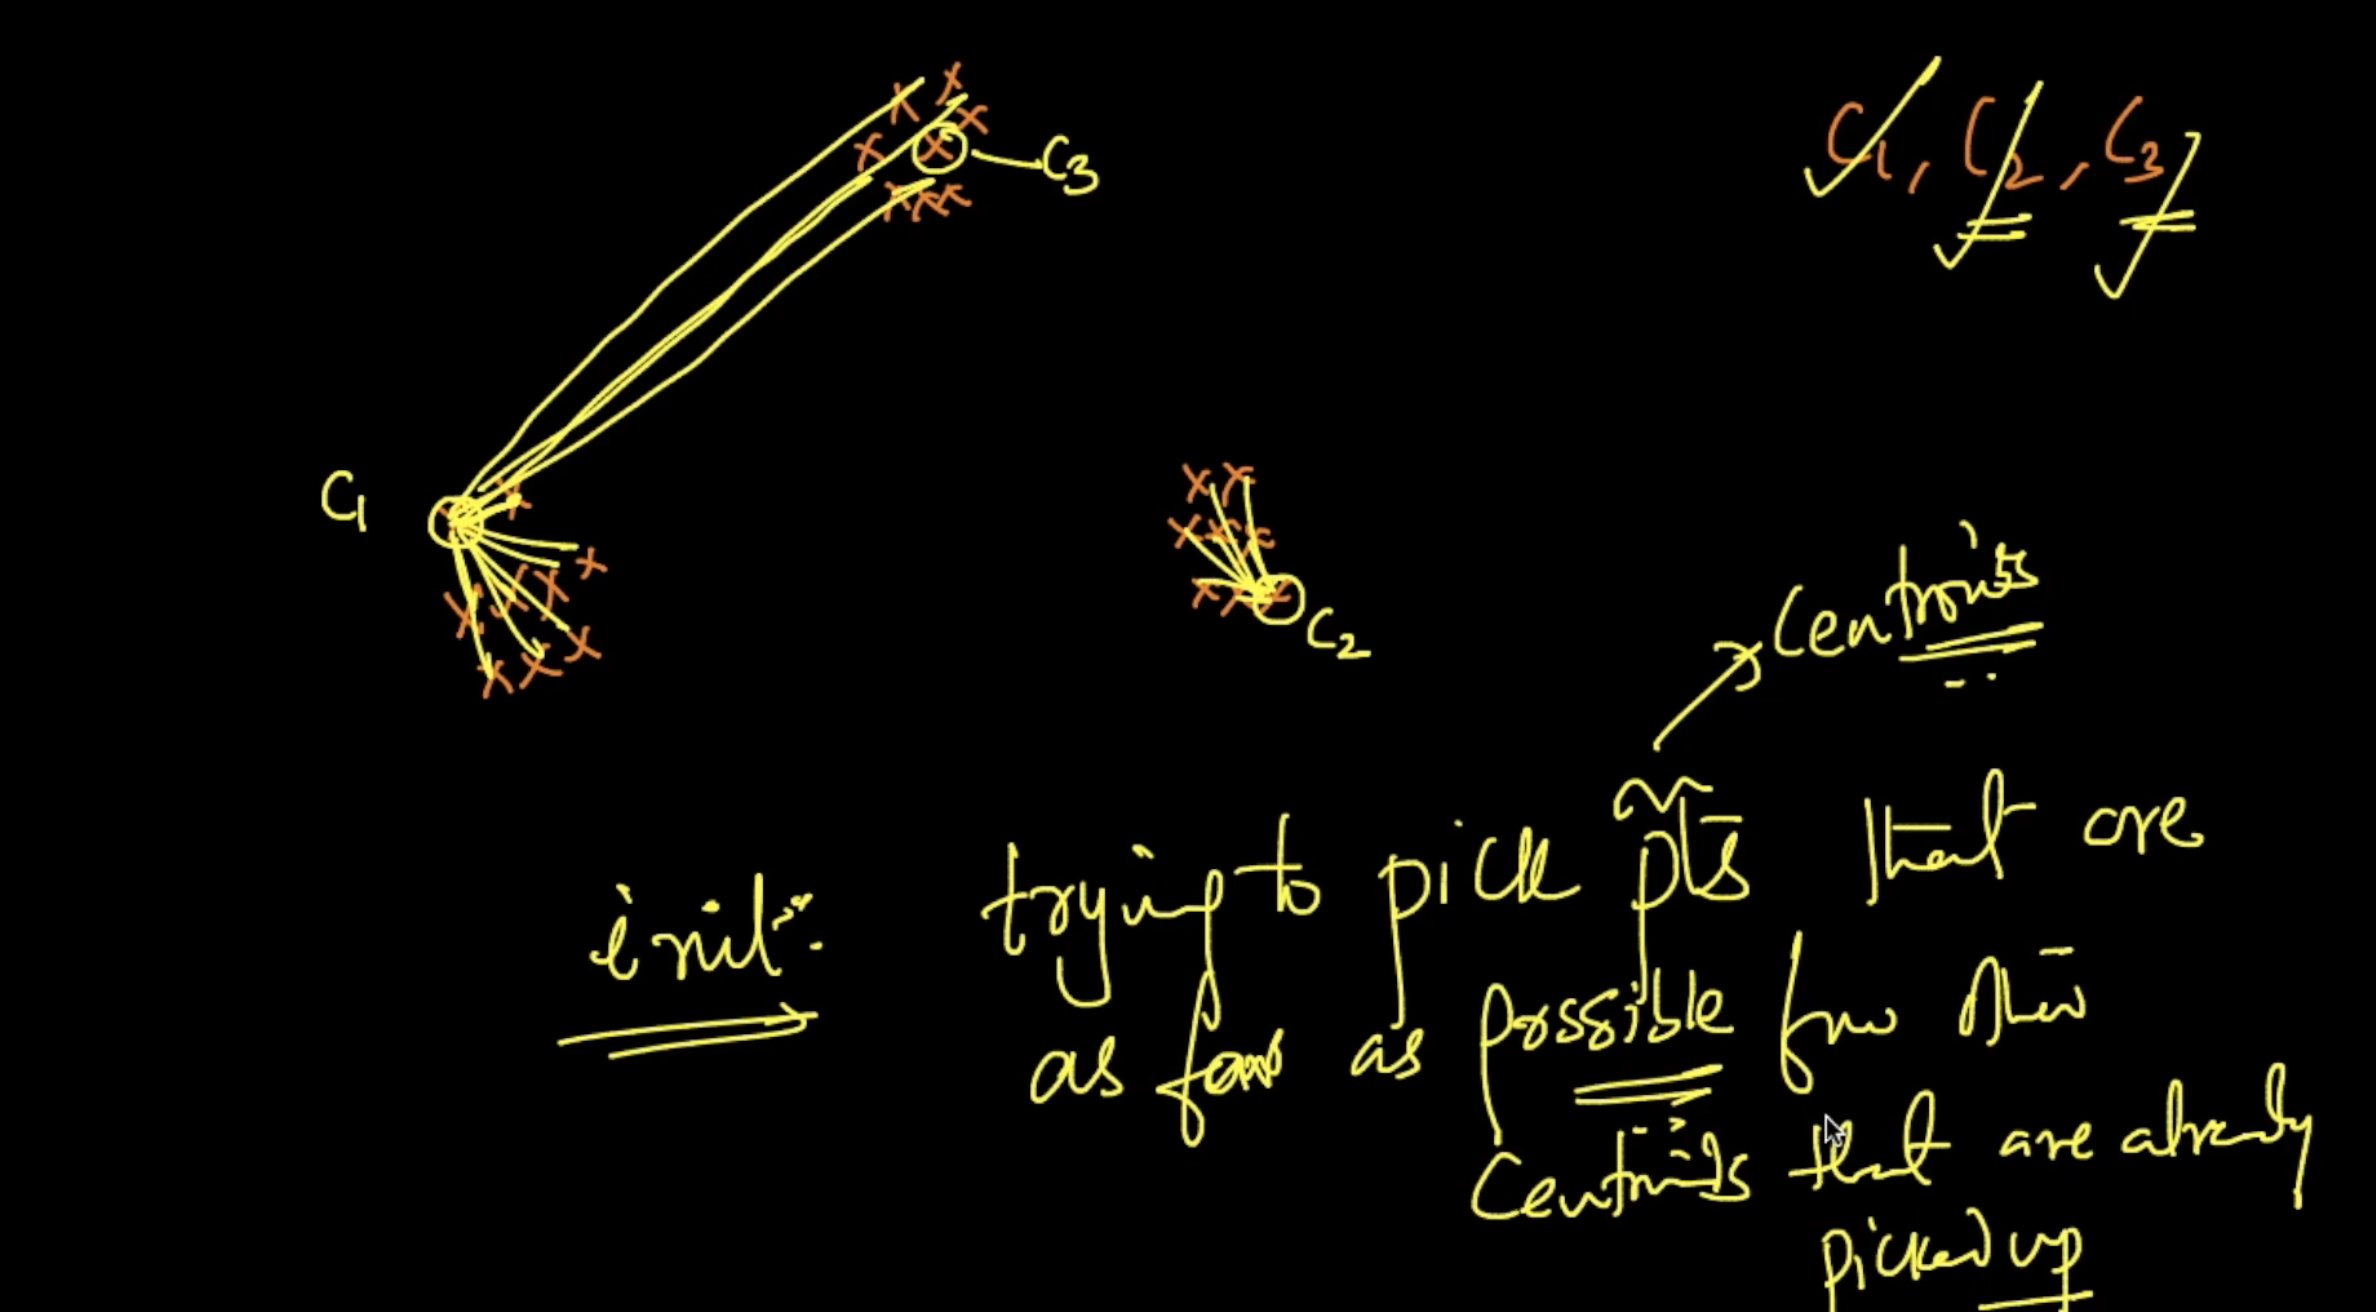 C3
C1, C2, C3
C1
C2
Centroids
init: trying to pick pts that are
as far as possible from other
Centroids that are already
picked up